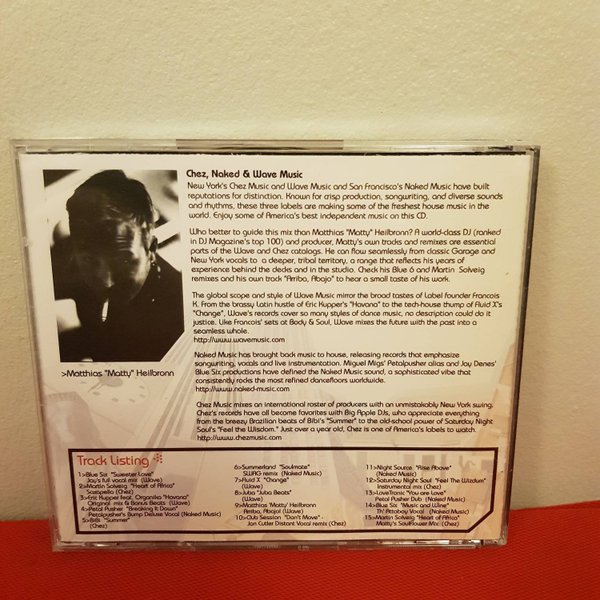 Chez, Naked & Wave Music
New York's Chez Music and Wave Music and San Francisco's Naked Music have built
reputations for distinction. Known for crisp production, songwriting, and diverse sounds
and rhythms, these three labels are making some of the freshest house music in the
world. Enjoy some of America's best independent music on this CD.
Who better to guide this mix than Matthias "Matty" Heilbronn? A world-class DJ (ranked
in DJ Magazine's top 100) and producer, Matty's own tracks and remixes are essential
parts of the Wave and Chez catalogs. He can flow seamlessly from classic Garage and
New York vocals to a deeper, tribal territory, a range that reflects his years of
experience behind the decks and in the studio. Check his Blue 6 and Martin Solveig
remixes and his own track "Arriba, Abajo" to hear a small taste of his work.
The global scope and style of Wave Music mirror the broad tastes of Label founder Francois
K. From the brassy Latin hustle of Eric Kupper's "Havana" to the tech-house thump of Fluid X's
"Change", Wave's records cover so many styles of dance music, no description could do it
justice. Like Francois' sets at Body & Soul, Wave mixes the future with the past into a
seamless whole.
http://www.wavemusic.com
Naked Music has brought back music to house, releasing records that emphasize
songwriting, vocals and live instrumentation. Miguel Migs' Petalpusher alias and Jay Denes'
Blue Six productions have defined the Naked Music sound, a sophisticated vibe that
consistently rocks the most refined dancefloors worldwide.
http://www.naked-music.com
Chez Music mixes an international roster of producers with an unmistakably New York swing.
Chez's records have all become favorites with Big Apple DJs, who appreciate everything
from the breezy Brazilian beats of Bibi's "Summer" to the old-school power of Saturday Night
Soul's "Feel the Wisdom." Just over a year old, Chez is one of America's labels to watch.
http://www.chezmusic.com
>Matthias "Matty" Heilbronn
Track Listing
1>Blue Six "Sweeter Love"
Jay's full vocal mix (Wave)
2>Martin Solveig "Heart of Africa"
Scatappella (Chez)
3>Eric Kupper feat. Organika "Havana"
Original mix & Bonus Beats (Wave)
4>Petal Pusher "Breaking It Down"
Petalpusher's Bump Deluxe Vocal (Naked Music)
5>BiBi "Summer"
(Chez)
6>Summerland "Soulmate"
SWAG remix (Naked Music)
7>Fluid X "Change"
(Wave)
8>Juba "Juba Beats"
(Wave)
9>Matthias 'Matty' Heilbronn
Arriba, Abajo! (Wave)
10>Club Session "Don't Move" -
Jon Cutler Distant Vocal remix (Chez)
11>Night Source "Rise Above"
(Naked Music)
12>Saturday Night Soul "Feel The Wizdum"
Instrumental mix (Chez)
13>LoveTronic "You are Love"
Petal Pusher Dub (Naked Music)
14>Blue Six "Music and Wine"
Th' Attaboy Vocal (Naked Music)
15>Martin Solveig "Heart of Africa"
Matty's SoulFlower Mix (Chez)